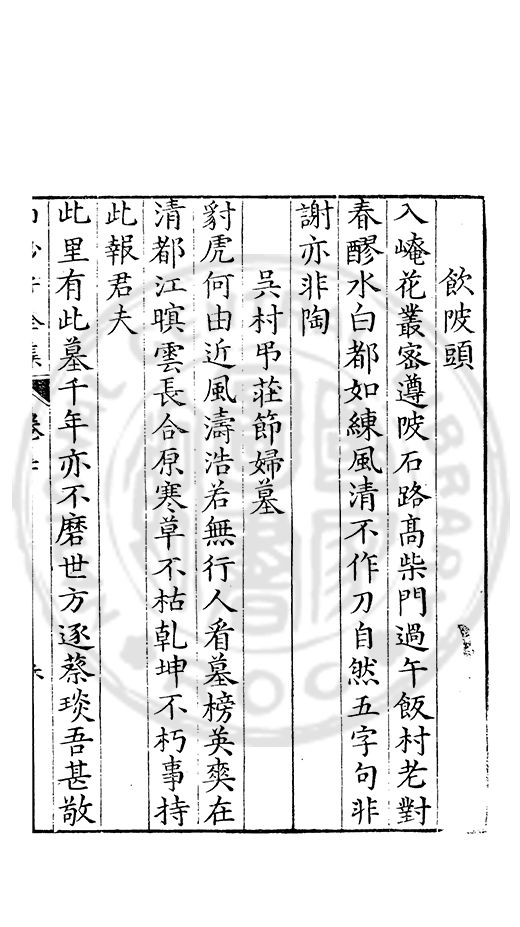 飲陂頭
入崦花叢密遵陂石路髙柴門過午飯村老對
春醪水白都如練風清不作刀自然五字句非
謝亦非陶
吳村弔莊節婦墓
豺虎何由近風濤浩若無行人看墓榜英爽在
清都江暝雲長合原寒草不枯乾坤不朽事持
此報君夫
此里有此墓千年亦不磨世方逐蔡琰吾甚敬